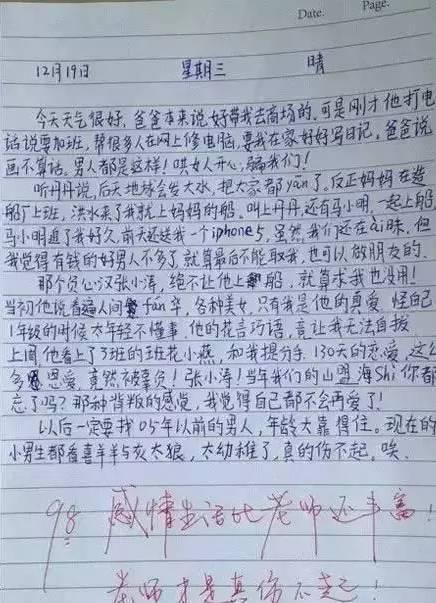 Date. Page.
12月19日 星期三 晴
今天天气很好,爸爸本来说好带我去商场的,可是刚才他打电
话说要加班,帮很多人在网上修电脑,要我在家好好写日记。爸爸说
画不算话。男人都是这样!哄女人开心,骗我们!
听丹丹说,后天地球会发大水,把大家都yān了。反正妈妈在造
船厂上班,洪水来了我就上妈妈的船。叫上丹丹,还有马小明,一起上船,
马小明追了我好久,前天还送我一个iphone5,虽然我们还在ài昧,但
我觉得有钱的好男人不多了,就算最后不能取我,也可以做朋友的。
那个负心汉张小涛,绝不让他上船,就算求我也没用!
当初他说看遍人间fán华,各种美女,只有我是他的真爱,怪自己
1年级的时候太年轻不懂事,他的花言巧语,竟让我无法自拔
上周他看上了3班的班花小燕,和我提分手,130天的恋爱,这么
多恩爱,竟然被辜负!张小涛!当年我们的山盟海Shì你都
忘了吗?那种背叛的感觉,我觉得自己都不会再爱了!
以后一定要找05年以前的男人,年龄大靠得住。现在的
小男生都看喜羊羊与灰太狼,太幼稚了,真的伤不起。唉。
98 感情生活比老师还丰富!
老师才是真伤不起!